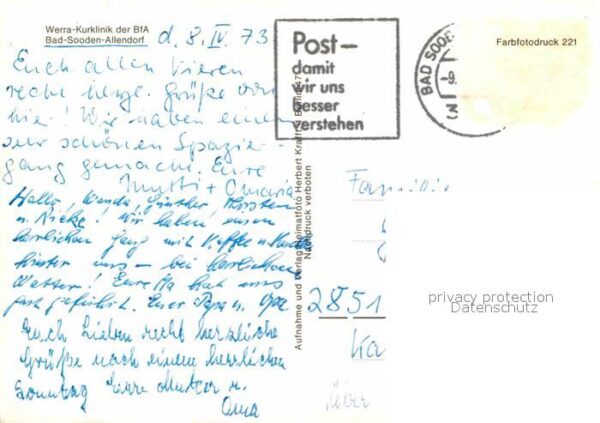 Werra-Kurklinik der BfA
Bad-Sooden-Allendorf
d. 8. IV. 73
Euch allen Vieren
recht herzl. Grüße von
hier! Wir haben einen
sehr schönen Spazier-
gang gemacht. Eure
Mutti +
Hallo, Wanda, Günther
u. Wir haben einen
herrlichen Gang mit Kaffee u.
hinter uns – bei herrlichem
Wetter! hat uns
gut geführt. Euer Papa u. Opa
Euch Lieben recht herzliche
Grüße nach einem herrlichen
Sonntag Eure Mutter u.
Oma
Post-
damit
wir uns
besser
verstehen
BAD SOODE
-9.
Farbfotodruck 221
Aufnahme und Verlag Heimatfoto Herbert Krafft
Nachdruck verboten
Familie
2851
Ka
über
privacy protection
Datenschutz